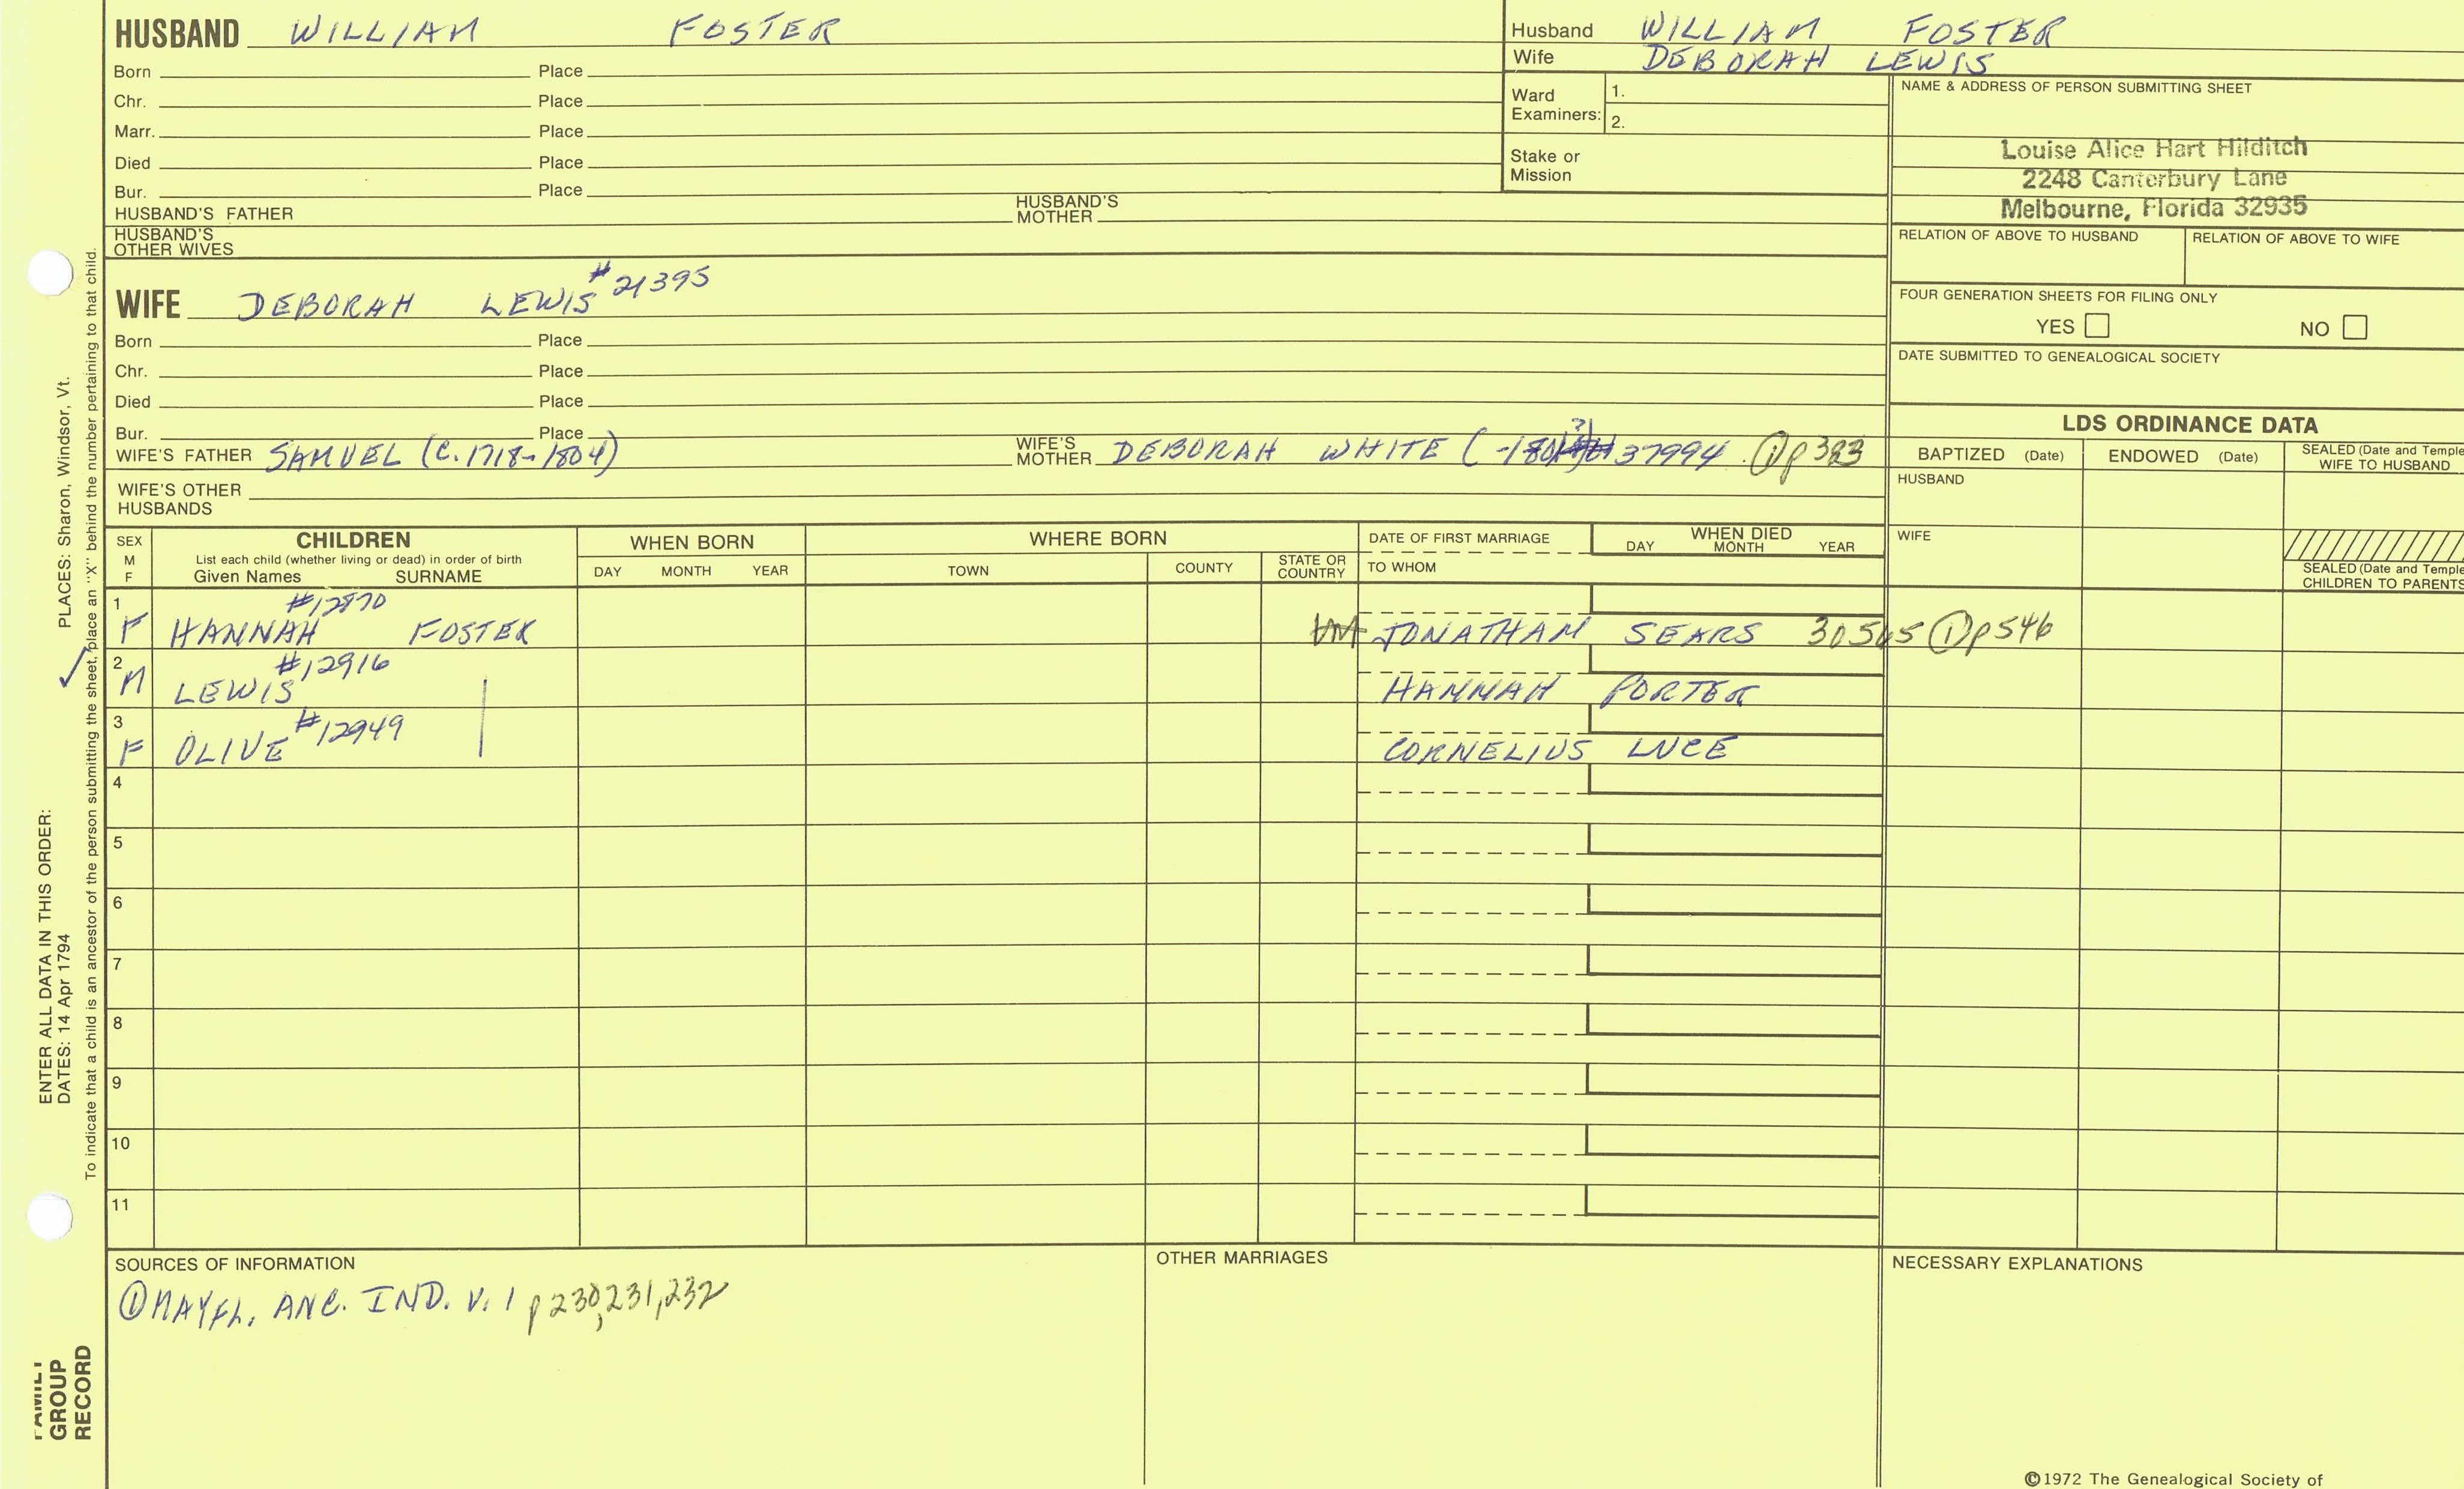 HUSBAND WILLIAM FOSTER
Born Place
Chr. Place
Marr. Place
Died Place
Bur. Place
HUSBAND'S FATHER HUSBAND'S MOTHER
HUSBAND'S OTHER WIVES
Husband WILLIAM FOSTER
Wife DEBORAH LEWIS
Ward Examiners: 1.
2.
Stake or Mission
NAME & ADDRESS OF PERSON SUBMITTING SHEET
Louise Alice Hart Hilditch
2248 Canterbury Lane
Melbourne, Florida 32935
RELATION OF ABOVE TO HUSBAND RELATION OF ABOVE TO WIFE
FOUR GENERATION SHEETS FOR FILING ONLY
YES NO
DATE SUBMITTED TO GENEALOGICAL SOCIETY
WIFE DEBORAH LEWIS #21395
Born Place
Chr. Place
Died Place
Bur. Place
WIFE'S FATHER SAMUEL (C. 1718-1804) WIFE'S MOTHER DEBORAH WHITE ( 37994 ① p 383
WIFE'S OTHER HUSBANDS
LDS ORDINANCE DATA
BAPTIZED (Date) ENDOWED (Date) SEALED (Date and Temple
WIFE TO HUSBAND
HUSBAND
WIFE
SEALED (Date and Temple
CHILDREN TO PARENTS
SEX M F
CHILDREN
List each child (whether living or dead) in order of birth
Given Names SURNAME
WHEN BORN
DAY MONTH YEAR
WHERE BORN
TOWN COUNTY STATE OR COUNTRY
DATE OF FIRST MARRIAGE
TO WHOM
WHEN DIED
DAY MONTH YEAR
1 #12870
F HANNAH FOSTER JONATHAM SEARS 30565 ① p546
2 #12916
M LEWIS HANNAH PORTER
3 #12949
F OLIVE CORNELIUS LUCE
4
5
6
7
8
9
10
11
SOURCES OF INFORMATION
① MAYFL. ANC. IND. V. 1 p 230, 231, 232
OTHER MARRIAGES
NECESSARY EXPLANATIONS
©1972 The Genealogical Society of
ENTER ALL DATA IN THIS ORDER:
DATES: 14 Apr 1794 PLACES: Sharon, Windsor, Vt.
To indicate that a child is an ancestor of the person submitting the sheet, place an "X" behind the number pertaining to that child.
FAMILY
GROUP
RECORD